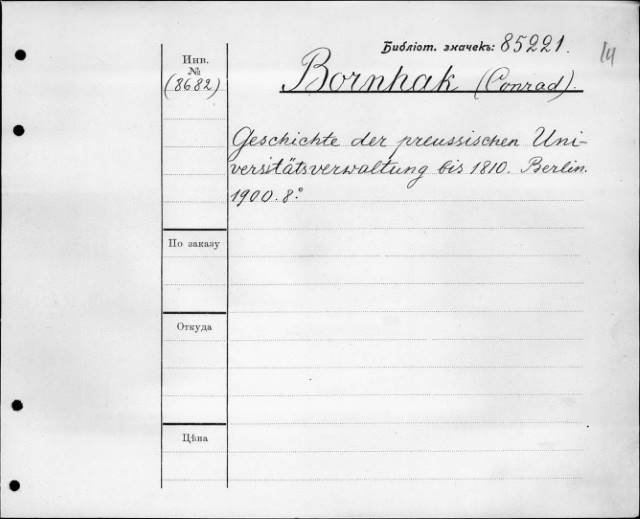 Библіот. значекъ: 85221.
14
Инв.
№
(8682)
Bornhak (Conrad).
Geschichte der preussischen Uni-
versitätsverwaltung bis 1810. Berlin.
1900. 8.°
По заказу
Откуда
Цѣна